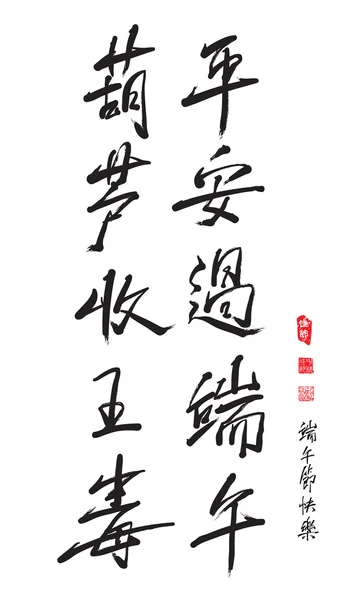 平安過端午
葫芦收五毒
端午節快樂